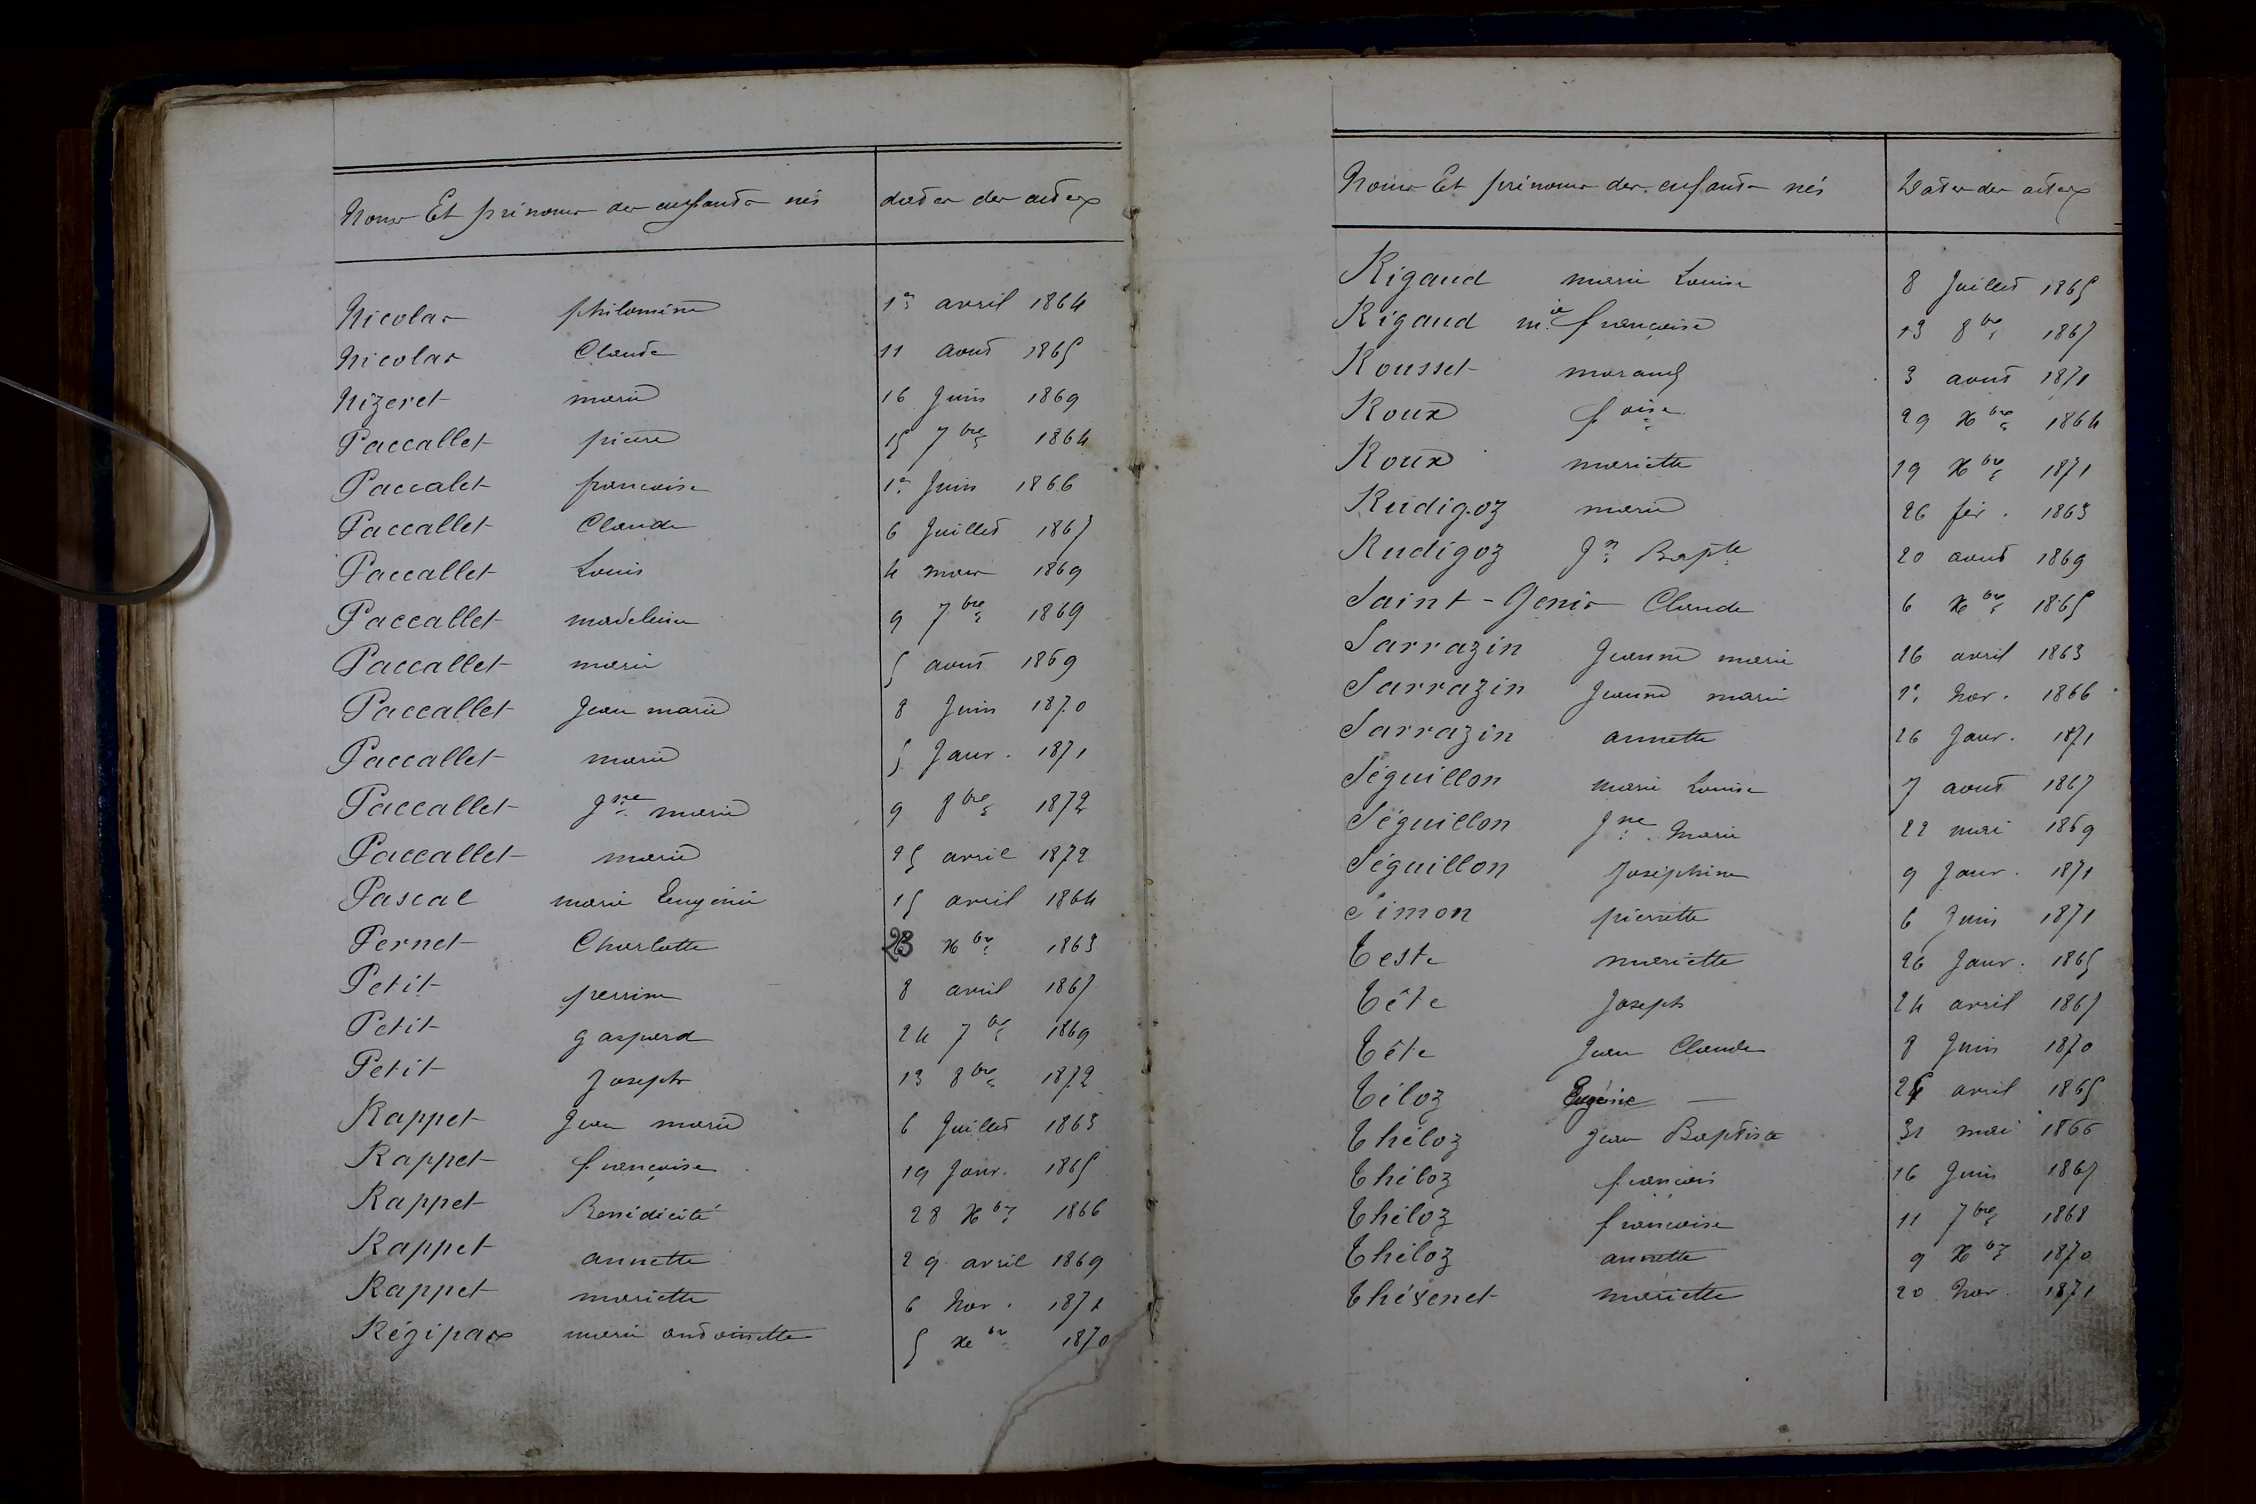 Noms Et prénoms des enfants nés dates des actes
Nicolas philomène 1er avril 1864
Nicolas Claude 11 aout 1865
Nizeret marie 16 Juin 1869
Paccallet pierre 15 7bre 1864
Paccalet francoise 1er Juin 1866
Paccallet Claude 6 Juillet 1867
Paccallet Louis 4 mars 1869
Paccallet madeleine 9 7bre 1869
Paccallet marie 5 aout 1869
Paccallet Jean marie 8 Juin 1870
Paccallet marie 5 Janv. 1871
Paccallet Jne marie 9 8bre 1872
Paccallet marie 25 avril 1872
Pascal marie Eugénie 15 avril 1864
Pernet Charlotte 23 Xbre 1863
Petit perrine 8 avril 1867
Petit gaspard 24 7bre 1869
Petit Joseph 13 8bre 1872
Rappet Jean marie 6 Juillet 1863
Rappet françoise 19 Janv. 1865
Rappet Bénédicité 28 Xbre 1866
Rappet annette 29 avril 1869
Rappet mariette 6 Nov. 1871
Régipas marie antoinette 5 Xbre 1870
Noms Et prénoms des enfants nés Dates des actes
Rigaud marie Louise 8 Juillet 1865
Rigaud mie françoise 13 8bre 1867
Rousset 3 aout 1871
Roux foise 29 Xbre 1864
Roux mariette 19 Xbre 1871
Rudigoz marie 26 fév. 1863
Rudigoz Jn Bapte 20 aout 1869
Saint-Genis Claude 6 Xbre 1865
Sarrazin Jeanne marie 16 avril 1863
Sarrazin Jeanne marie 1er Nov. 1866
Sarrazin annette 26 Janv. 1871
Séguillon marie Louise 7 aout 1867
Séguillon Jne Marie 22 mai 1869
Séguillon Joséphine 9 Janv. 1871
Simon pierrette 6 Juin 1871
Teste mariette 26 Janv. 1865
Tête Joseph 24 avril 1867
Tête Jean Claude 8 Juin 1870
Téloz Eugénie — avril 1865
Théloz Jean Baptiste 31 mai 1866
Théloz francois 16 Juin 1867
Théloz francoise 11 7bre 1868
Théloz annette 9 Xbre 1870
Thévenet mariette 20 Nov. 1871